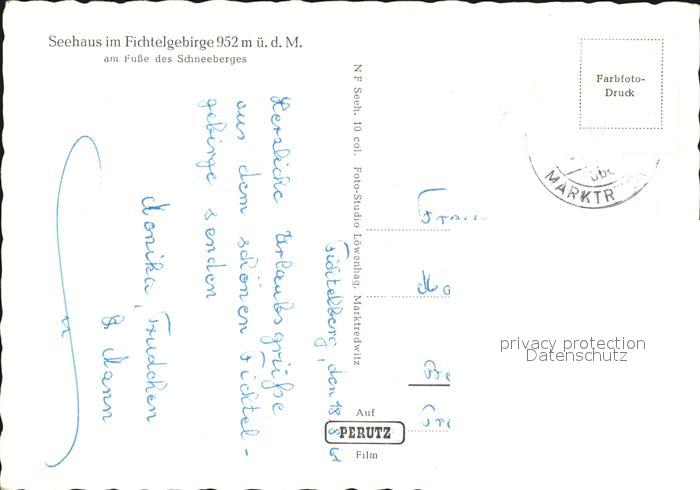 Seehaus im Fichtelgebirge 952 m ü. d. M.
am Fuße des Schneeberges
Farbfoto-
Druck
MARKTR
übe
N F Seeh. 10 col. Foto-Studio Löwenhag, Marktredwitz
Fichtelberg, den 18. 8. 61
Herzliche Urlaubsgrüße
aus dem schönen Fichtel-
gebirge senden
Monika, Trudchen
& Mann
privacy protection
Datenschutz
Auf
PERUTZ
Film